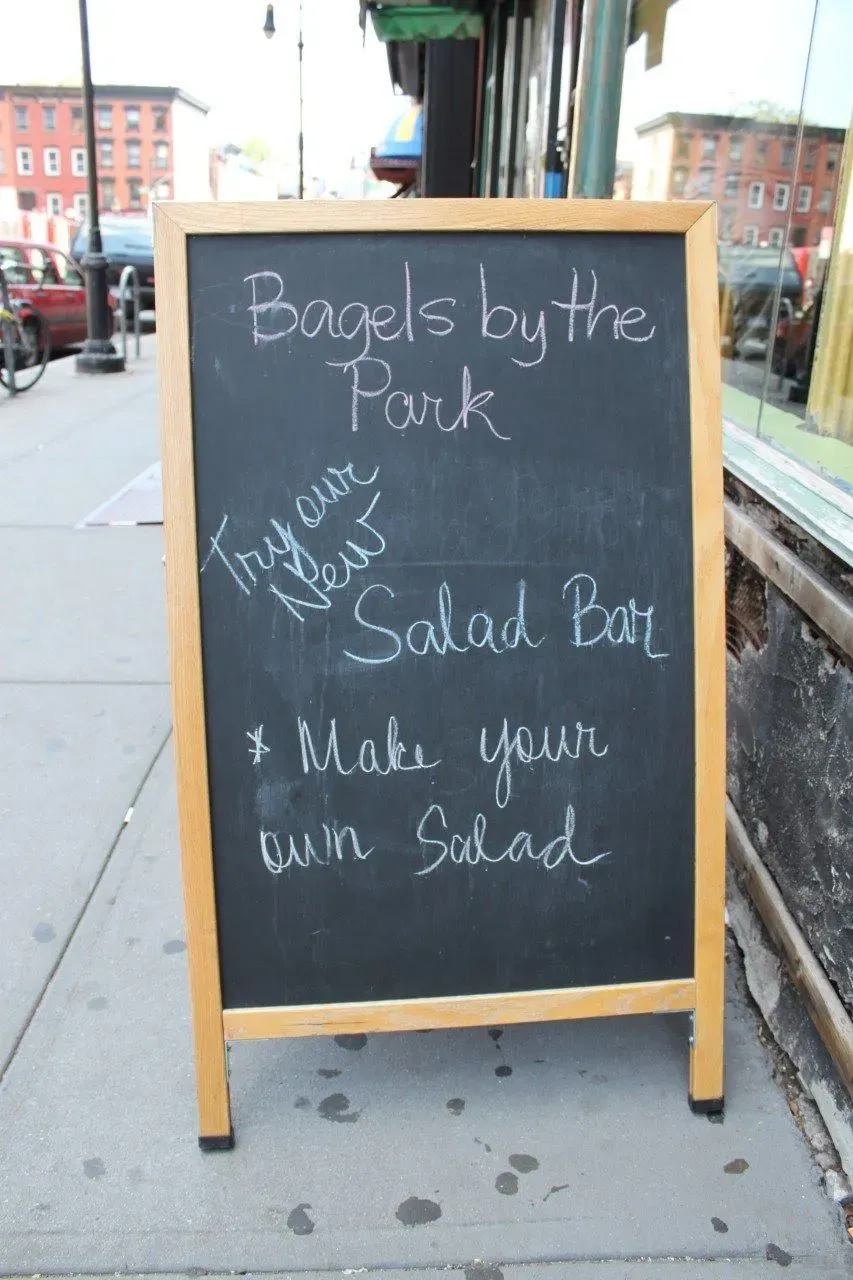 Bagels by the
Park
Try our
New
Salad Bar
* Make your
own Salad